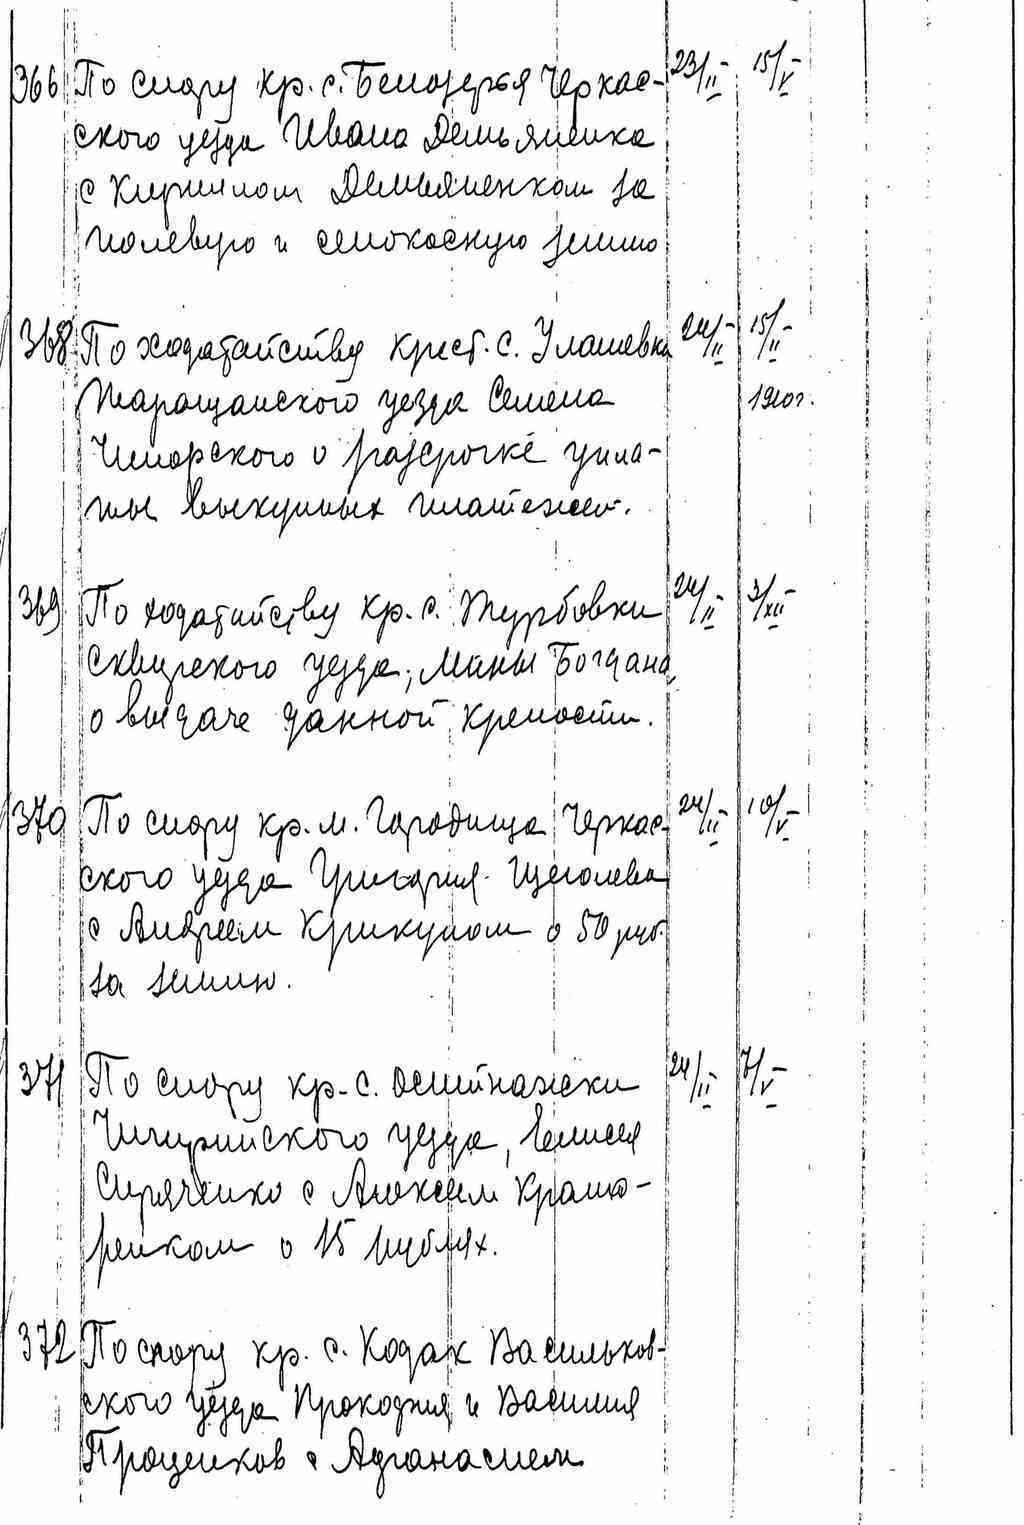 366 По спору кр. с. Белозерья Черкас- 23/II- 15/V-
ского уезда Ивана Демьяненка
с Кириллом Демьяненком за
полевую и сенокосную землю
368 По ходатайству крест. с. Улашевки 24/II- 15/II-
Таращанского уезда Семена 1910г.
о разсрочке упла-
ты выкупных платежей.
369 По ходатайству кр. с. Журбовки 24/II- 3/XII-
Сквирского уезда, Мины Богдана,
о выдаче данной крепости.
370 По спору кр. м. Городища Черкас- 24/II- 10/V-
ского уезда Григория Щеголева
с Андреем Крикуном о 50 руб.
за землю.
371 По спору кр. с. Оситняжски 24/II- 7/V-
Чигиринского уезда, Елисея
Сиряченко с Алексеем Крама-
ренком о 15 рублях.
372 По спору кр. с. Кодак Васильков-
ского уезда Прокофия и Василия
Проценков с Афанасием